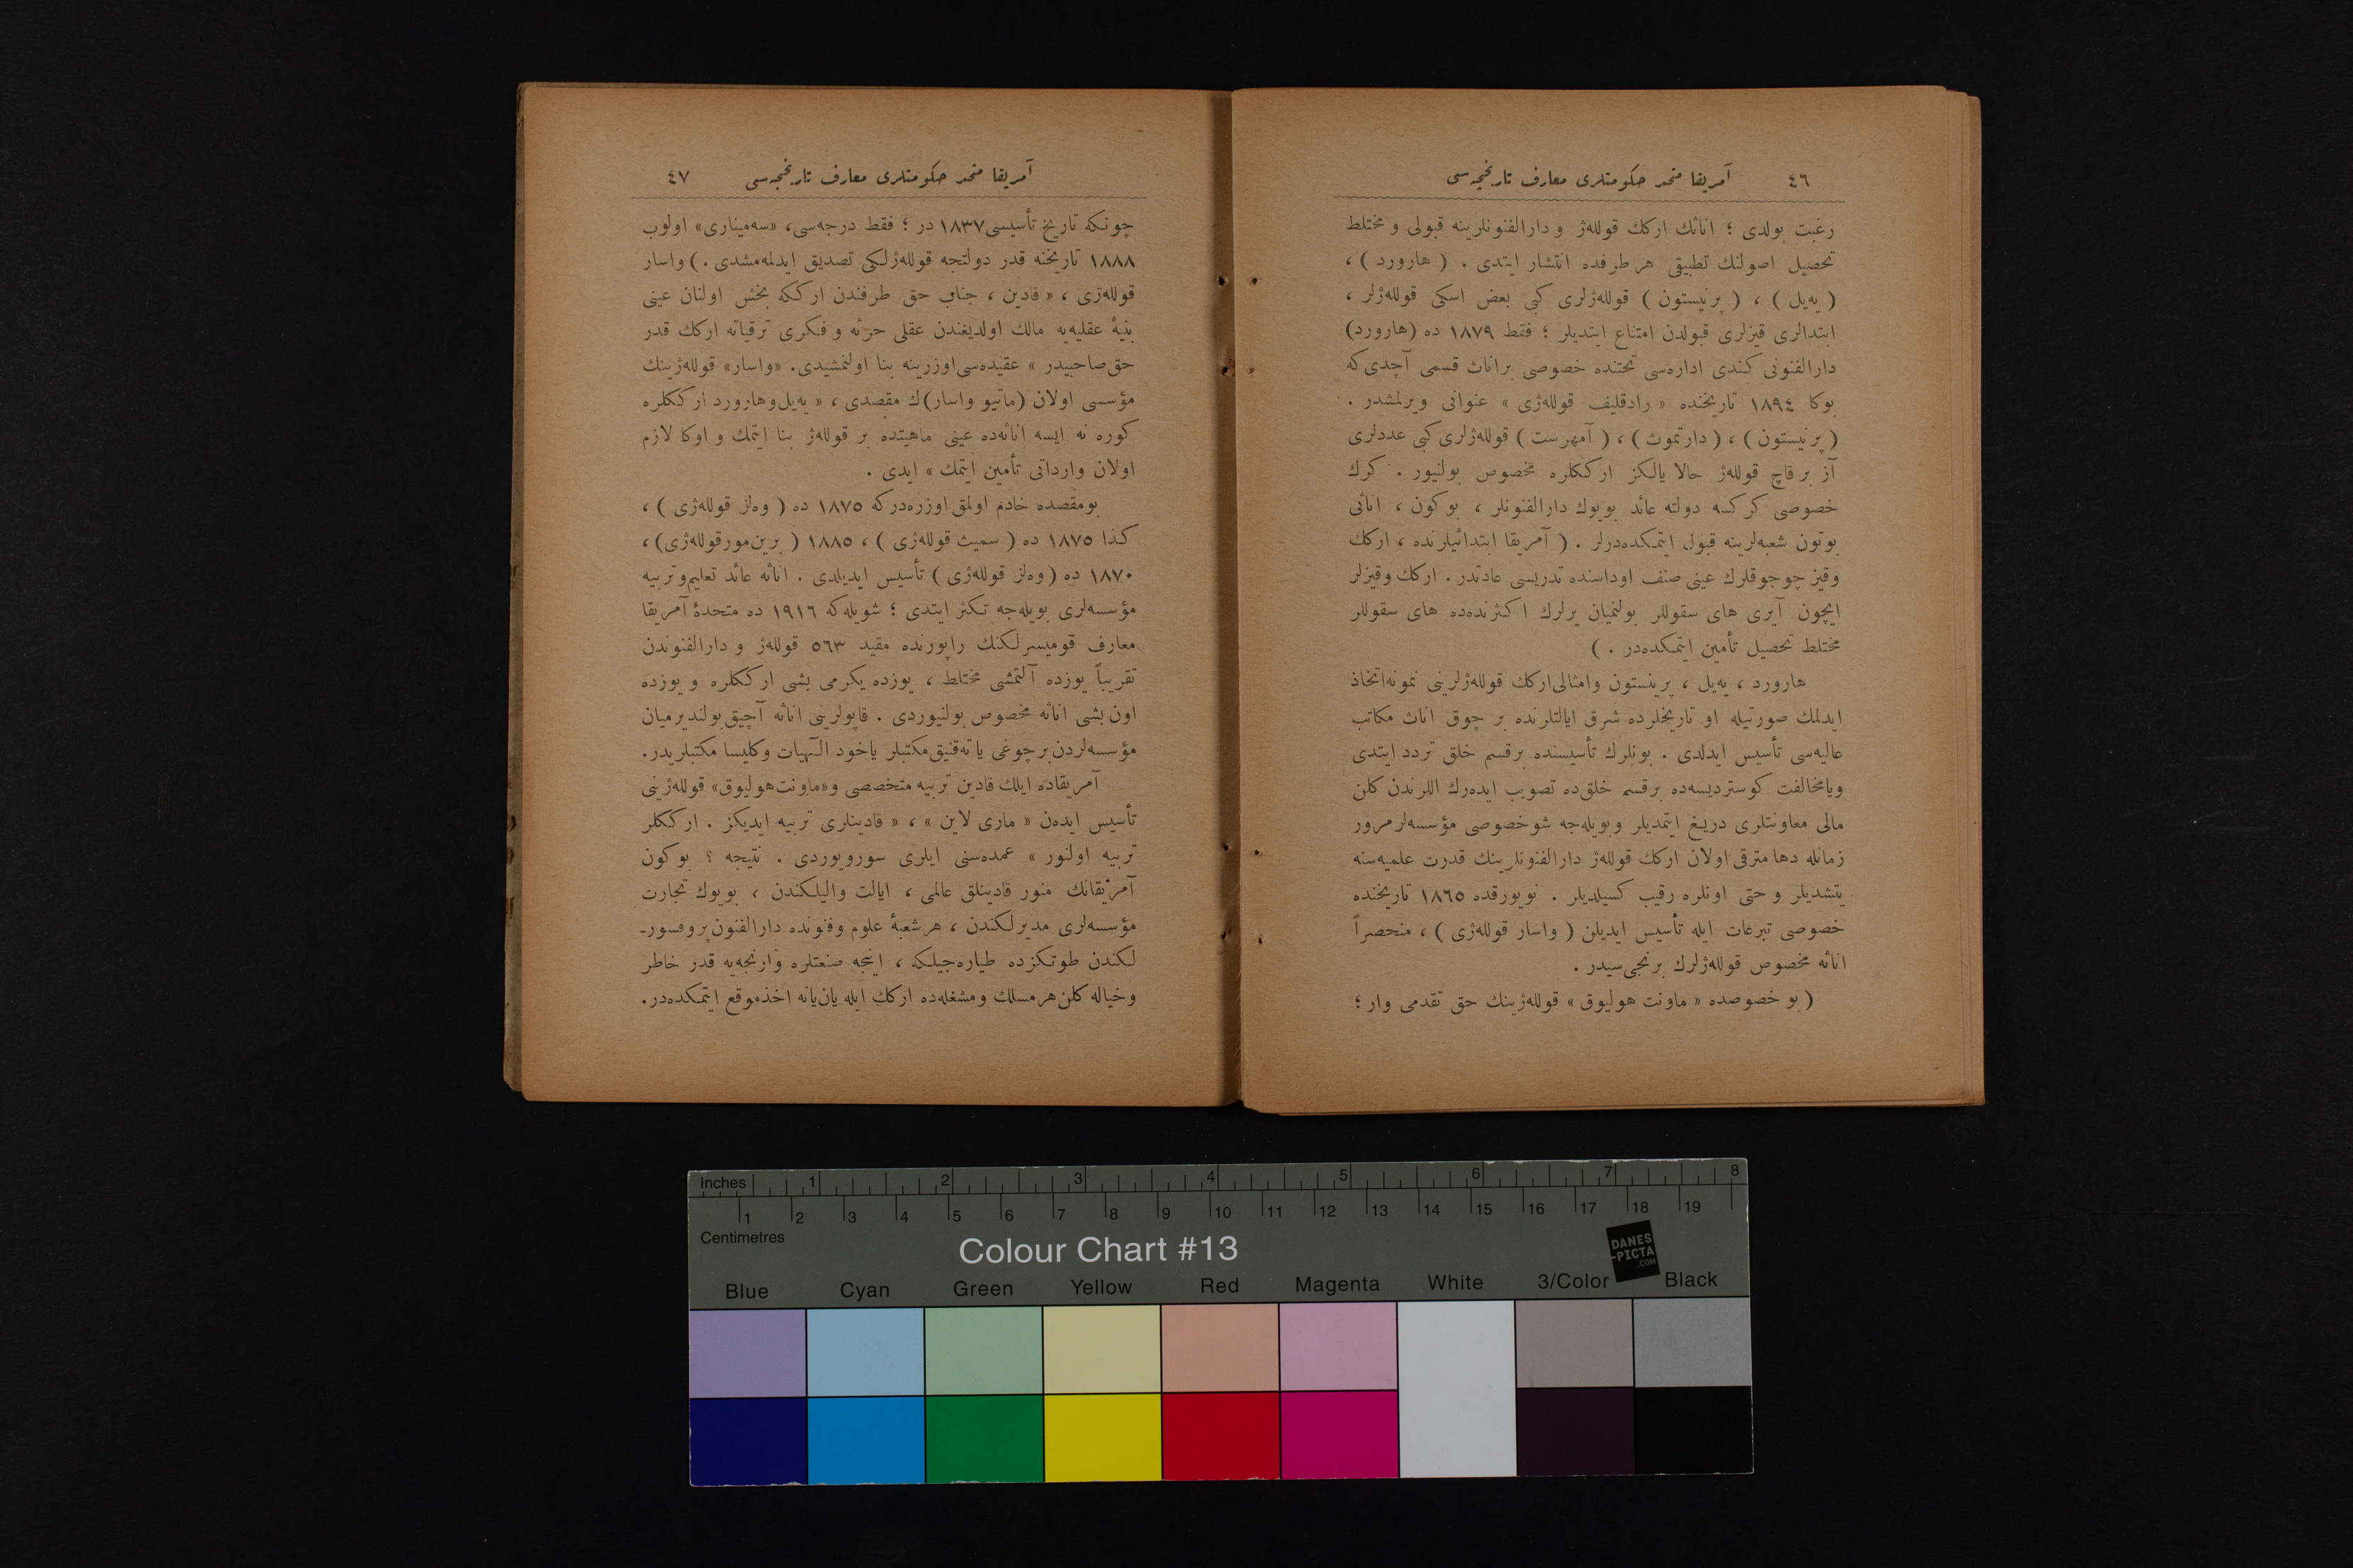 ٤٦ آمریقا متحد حکومتلری معارف تاریخچه‌سی
رغبت بولدی ؛ اناثك ارکك قولله‌ژ و دارالفنونلرینه قبولی و مختلط
تحصیل اصولنك تطبیقی هر طرفده انتشار ایتدی . ( هارورد ) ،
( یه‌یل ) ، ( پرنیستون ) قولله‌ژلری کبی بعض اسکی قولله‌ژلر ،
ابتدالری قیزلری قبولدن امتناع ایتدیلر ؛ فقط ١٨٧٩ ده (هارورد)
دارالفنونی کندی اداره‌سی تحتنده خصوصی بر اناث قسمی آچدی که
بوکا ١٨٩٤ تاریخنده « رادقلیف قولله‌ژی » عنوانی ویرلمشدر .
( پرنیستون ) ، ( دارتموث ) ، ( آمهرست ) قولله‌ژلری کبی عددلری
آز بر قاچ قولله‌ژ حالا یالکز ارککلره مخصوص بولنیور . کرك
خصوصی کرکسه دولته عائد بویوك دارالفنونلر ، بوکون ، اناثی
بوتون شعبه‌لرینه قبول ایتمکده‌درلر . ( آمریقا ابتدائیلرنده ، ارکك
وقیز چوجوقلرك عینی صنف اوداسنده تدریسی عادتدر . ارکك وقیزلر
ایچون آیری های سقوللر بولنمیان یرلرك اکثرنده‌ده های سقوللر
مختلط تحصیل تأمین ایتمکده‌در . )
هارورد ، یه‌یل ، پرینستون وامثالی ارکك قولله‌ژلرینی نمونه اتخاذ
ایدلمك صورتیله او تاریخلرده شرق ایالتلرنده بر چوق اناث مکاتب
عالیه‌سی تأسیس ایدلدی . بونلرك تأسیسنده بر قسم خلق تردد ایتدی
ویا مخالفت کوستردیسه‌ده بر قسم خلق‌ده تصویب ایده‌رك اللرندن کلن
مالی معاونتلری دریغ ایتمدیلر و بویله‌جه شو خصوصی مؤسسه‌لر مرور
زمانله دها مترقی اولان ارکك قولله‌ژ دارالفنونلرینك قدرت علمیه‌سنه
یتشدیلر و حتی اونلره رقیب کسیلدیلر . نویورقده ١٨٦٥ تاریخنده
خصوصی تبرعات ایله تأسیس ایدیلن ( واسار قولله‌ژی ) ، منحصراً
اناثه مخصوص قولله‌ژلرك برنجی‌سیدر .
( بو خصوصده « ماونت هولیوق » قولله‌ژینك حق تقدمی وار ؛
آمریقا متحد حکومتلری معارف تاریخچه‌سی ٤٧
چونکه تاریخ تأسیسی ١٨٣٧ در ؛ فقط درجه‌سی، «سه‌میناری» اولوب
١٨٨٨ تاریخنه قدر دولتجه قولله‌ژلکی تصدیق ایدلمه‌مشدی . ) واسار
قولله‌ژی ، « قادین ، جناب حق طرفندن ارککه بخش اولنان عینی
بنیهٔ عقلیه‌یه مالك اولدیغندن عقلی حرثه و فکری ترقیاته ارکك قدر
حق صاحبیدر » عقیده‌سی اوزرینه بنا اولنمشیدی. «واسار» قولله‌ژینك
مؤسسی اولان (ماتیو واسار)ك مقصدی ، « یه‌یل و هارورد ارککلره
کوره نه ایسه اناثه‌ده عینی ماهیتده بر قولله‌ژ بنا ایتمك و اوکا لازم
اولان وارداتی تأمین ایتمك » ایدی .
بو مقصده خادم اولمق اوزره‌درکه ١٨٧٥ ده ( وه‌لز قولله‌ژی ) ،
کذا ١٨٧٥ ده ( سمیث قولله‌ژی ) ، ١٨٨٥ ( برین‌مور قولله‌ژی) ،
١٨٧٠ ده ( وه‌لز قولله‌ژی ) تأسیس ایدیلدی . اناثه عائد تعلیم و تربیه
مؤسسه‌لری بویله‌جه تکثر ایتدی ؛ شویله‌که ١٩١٦ ده متحدهٔ آمریقا
معارف قومیسرلکنك راپورنده مقید ٥٦٣ قولله‌ژ و دارالفنوندن
تقریباً یوزده آلتمشی مختلط ، یوزده یکرمی بشی ارککلره و یوزده
اون بشی اناثه مخصوص بولنیوردی . قاپولرینی اناثه آچیق بولندیرمیان
مؤسسه‌لردن بر چوغی یا ته‌قنیق مکتبلر یاخود الٓهیات و کلیسا مکتبلریدر.
آمریقاده ایلك قادین تربیه متخصصی و «ماونت هولیوق» قولله‌ژینی
تأسیس ایده‌ن « ماری لاین » ، « قادینلری تربیه ایدیکز . ارککلر
تربیه اولنور » عمده‌سنی ایلری سورویوردی . نتیجه ؟ بوکون
آمریقانك منور قادینلق عالمی ، ایالت والیلکندن ، بویوك تجارت
مؤسسه‌لری مدیرلکندن ، هر شعبهٔ علوم وفنونده دارالفنون پروفسور-
لکندن طوتکزده طیاره‌جیلکه ، اینجه صنعتلره وارنجه‌یه قدر خاطر
وخیاله کلن هر مسلك و مشغله‌ده ارکك ایله یان یانه اخذ موقع ایتمکده‌در.
Inches 1 2 3 4 5 6 7 8
1 2 3 4 5 6 7 8 9 10 11 12 13 14 15 16 17 18 19
Centimetres
Colour Chart #13
DANES
-PICTA
.COM
Blue Cyan Green Yellow Red Magenta White 3/Color Black